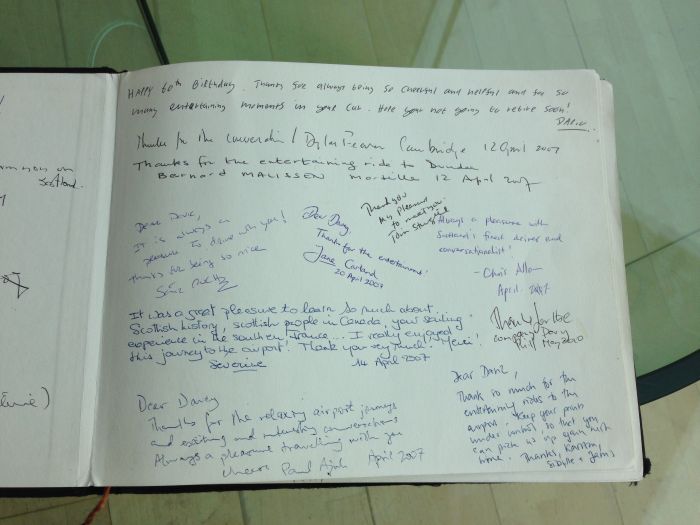 mmon on
Scotland.
HAPPY 60th Birthday. Thanks for always being so cheerful and helpful and for so
many entertaining moments in your car. Hope your not going to retire soon!
Thanks for the conversation / Cambridge 12 April 2007
Thanks for the entertaining ride to Dundee
Bernard MALISSEN Marseille 12 April 2007
Dear Dave,
It is always a
pleasure to drive with you!
Thanks for being so nice
Dear Davy,
Thanks for the entertainment!
Jane Carland
20 April 2007
Thank you
My pleasure
to meet you.
Tom
Always a pleasure with
Scotland's finest driver and
conversationalist!
- Chris Allan
April 2007
It was a great pleasure to learn so much about
Scottish history, scottish people in Canada, your sailing
experience in the southern France... I really enjoyed
this journey to the airport! Thank you very much! Merci!
Severine 14 April 2007
Thanks for the
company Davy
Phil May 2010
Dear Davey
Thanks for the relaxing airport journeys
and exciting and interesting conversations
Always a pleasure travelling with you
Cheers Paul April 2007
Dear Dave,
Thank so much for the
entertaining rides to the
airport. Keep your
under control, so that you
can pick us up again next
time. Thanks, Karsten,
Sibylle + James